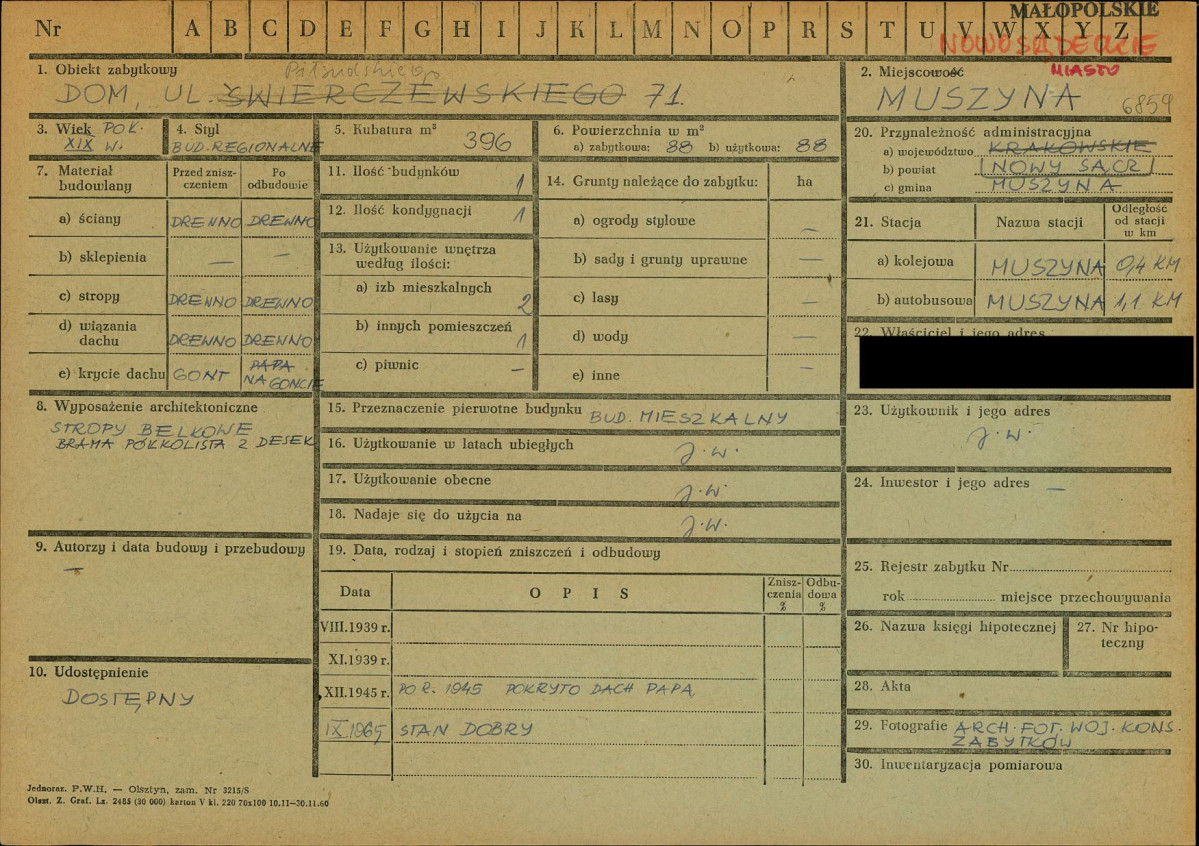 MAŁOPOLSKIE
Nr A B C D E F G H I J K L M N O P R S T U V W X Y Z
NOWOSĄDECKIE
1. Obiekt zabytkowy Piłsudskiego
DOM, UL. ŚWIERCZEWSKIEGO 71.
2. Miejscowość MIASTO
MUSZYNA 6859
3. Wiek POŁ.
XIX W.
4. Styl
BUD. REGIONALNE
5. Kubatura m³ 396
6. Powierzchnia w m²
a) zabytkowa: 88 b) użytkowa: 88
7. Materiał budowlany
Przed zniszczeniem
Po odbudowie
a) ściany DREWNO DREWNO
b) sklepienia — —
c) stropy DREWNO DREWNO
d) wiązania dachu DREWNO DREWNO
e) krycie dachu GONT PAPA
NA GONCIE
8. Wyposażenie architektoniczne
STROPY BELKOWE
BRAMA PÓŁKOLISTA Z DESEK
9. Autorzy i data budowy i przebudowy
—
10. Udostępnienie
DOSTĘPNY
11. Ilość budynków 1
12. Ilość kondygnacji 1
13. Użytkowanie wnętrza
według ilości:
a) izb mieszkalnych 2
b) innych pomieszczeń 1
c) piwnic —
14. Grunty należące do zabytku: ha
a) ogrody stylowe —
b) sady i grunty uprawne —
c) lasy —
d) wody —
e) inne —
15. Przeznaczenie pierwotne budynku BUD. MIESZKALNY
16. Użytkowanie w latach ubiegłych J.W.
17. Użytkowanie obecne J.W.
18. Nadaje się do użycia na J.W.
19. Data, rodzaj i stopień zniszczeń i odbudowy
Data OPIS Zniszczenia % Odbudowa %
VIII.1939 r.
XI.1939 r.
XII.1945 r. PO R. 1945 POKRYTO DACH PAPĄ
IX.1965 STAN DOBRY
20. Przynależność administracyjna
a) województwo KRAKOWSKIE
b) powiat NOWY SĄCZ
c) gmina MUSZYNA
21. Stacja Nazwa stacji Odległość od stacji w km
a) kolejowa MUSZYNA 0,4 KM
b) autobusowa MUSZYNA 1,1 KM
22. Właściciel i jego adres
23. Użytkownik i jego adres
J.W.
24. Inwestor i jego adres —
25. Rejestr zabytku Nr
rok miejsce przechowywania
26. Nazwa księgi hipotecznej
27. Nr hipoteczny
28. Akta
29. Fotografie ARCH. FOT. WOJ. KONS.
ZABYTKÓW
30. Inwentaryzacja pomiarowa
Jednoraz. P.W.H. — Olsztyn, zam. Nr 3215/S
Olszt. Z. Graf. Lz. 2485 (30 000) karton V kl. 220 70x100 10.11—30.11.60